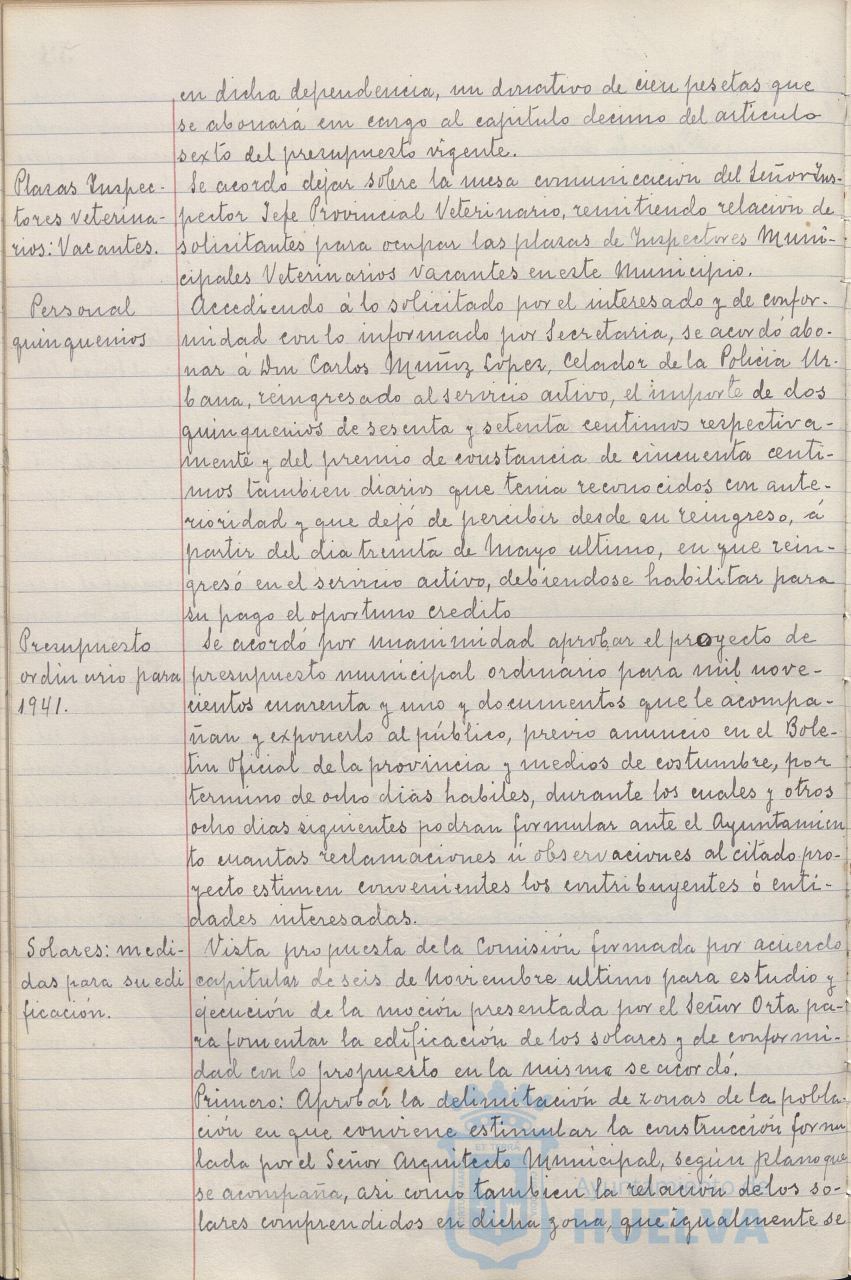 en dicha dependencia, un donativo de cien pesetas que
se abonará con cargo al capitulo decimo del articulo
sexto del presupuesto vigente.
Plazas Inspec-
tores veterina-
rios: Vacantes.
Se acordo dejar sobre la mesa comunicación del Señor Ins-
pector Jefe Provincial Veterinario, remitiendo relación de
solicitantes para ocupar las plazas de Inspectores Muni-
cipales Veterinarios vacantes en este Municipio.
Personal
quinquenios
Accediendo á lo solicitado por el interesado y de confor-
midad con lo informado por Secretaria, se acordó abo-
nar á Don Carlos Muñoz Lopez, Celador de la Policia Ur-
bana, reingresado al servicio activo, el importe de dos
quinquenios de sesenta y setenta centimos respectiva-
mente y del premio de constancia de cincuenta centi-
mos tambien diarios que tenia reconocidos con ante-
rioridad y que dejó de percibir desde su reingreso, á
partir del dia treinta de Mayo ultimo, en que rein-
gresó en el servicio activo, debiendose habilitar para
su pago el oportuno credito
Presupuesto
ordinario para
1941.
Se acordó por unanimidad aprobar el proyecto de
presupuesto municipal ordinario para mil nove-
cientos cuarenta y uno y documentos que le acompa-
ñan y exponerlo al público, previo anuncio en el Bole-
tin Oficial de la provincia y medios de costumbre, por
termino de ocho dias habiles, durante los cuales y otros
ocho dias siguientes podran formular ante el Ayuntamien
to cuantas reclamaciones ú observaciones al citado pro-
yecto estimen convenientes los contribuyentes ó enti-
dades interesadas.
Solares: medi-
das para su edi
ficación.
Vista propuesta de la Comisión formada por acuerdo
capitular de seis de Noviembre ultimo para estudio y
ejecución de la moción presentada por el Señor Orta pa-
ra fomentar la edificación de los solares y de conformi-
dad con lo propuesto en la misma se acordó.
Primero: Aprobar la delimitación de zonas de la pobla-
ción en que conviene estimular la construcción formu
lada por el Señor Arquitecto Municipal, según plano que
se acompaña, asi como tambien la relación de los so-
lares comprendidos en dicha zona, que igualmente se
Ayuntamiento de
HUELVA